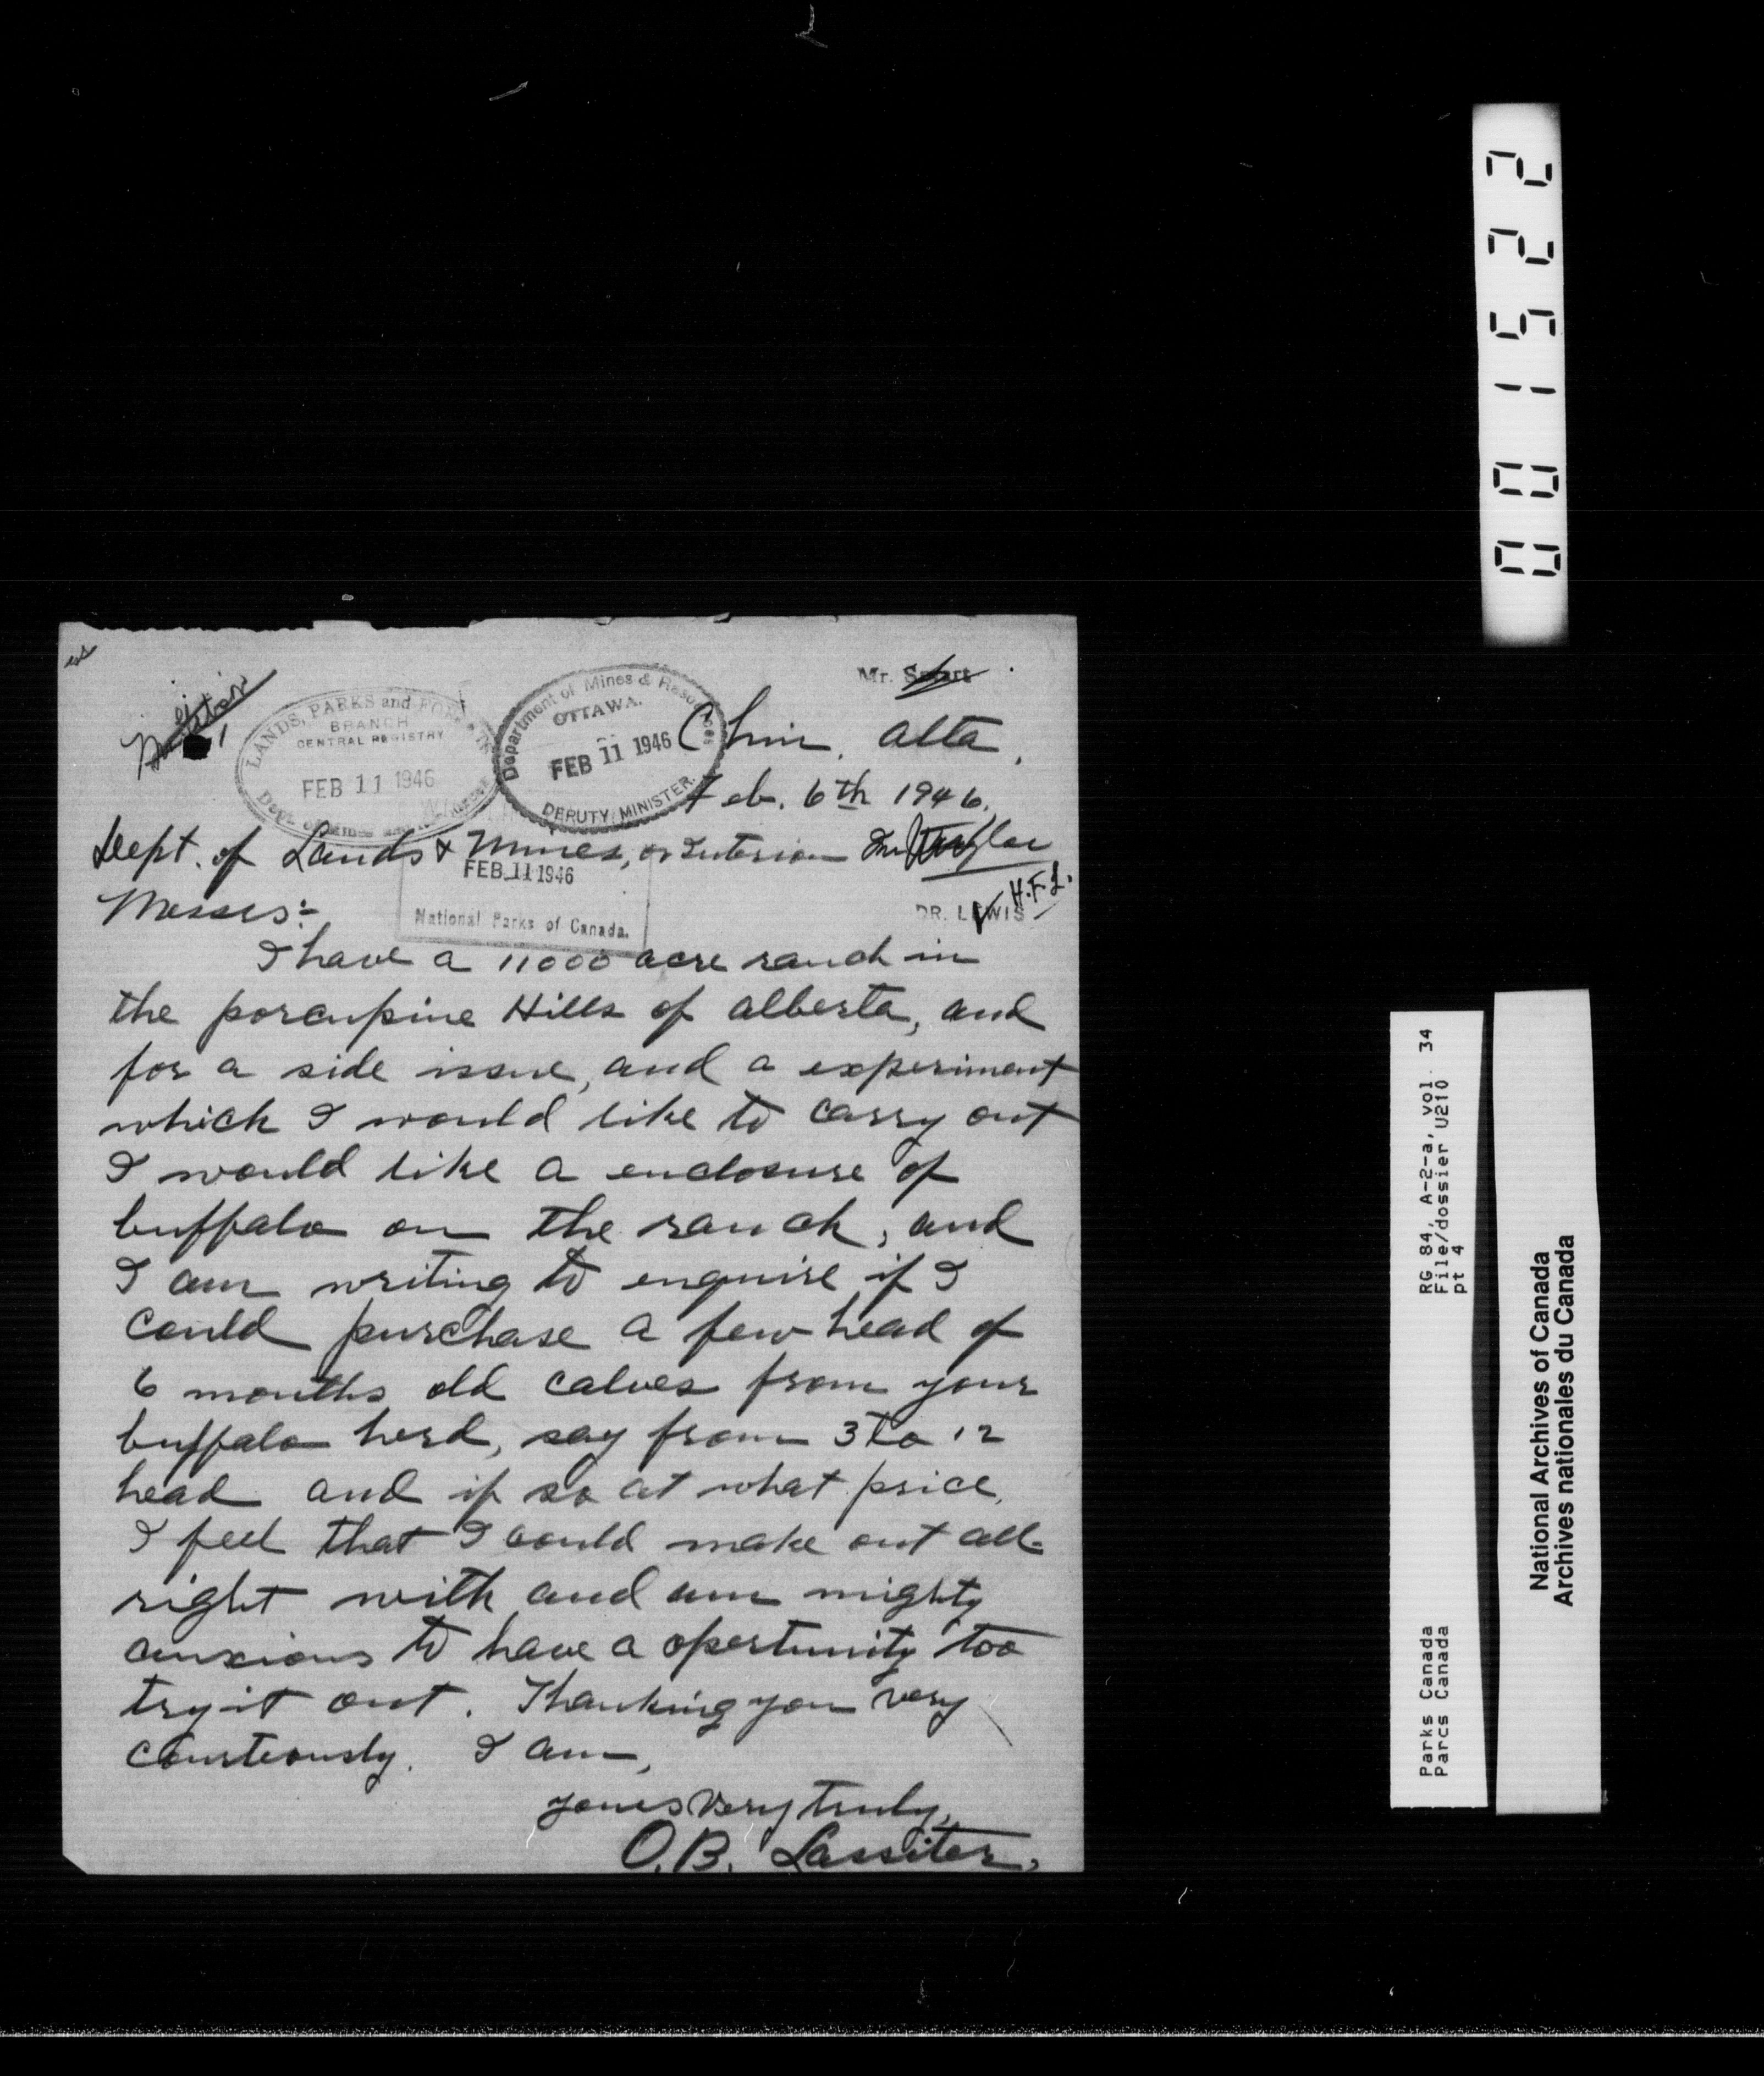 Mr. Smart
LANDS, PARKS and FORESTS
BRANCH
CENTRAL REGISTRY
FEB 11 1946
Dept. of Mines and Resources
Department of Mines & Resources
OTTAWA.
FEB 11 1946
DEPUTY MINISTER.
Chin, Alta,
Feb. 6th 1946.
Dept. of Lands & Mines, or Interior
FEB 11 1946
National Parks of Canada.
H.F.L.
DR. LEWIS
Messrs:-
I have a 11000 acre ranch in
the porcupine Hills of alberta, and
for a side issue, and a experiment
which I would like to carry out
I would like a enclosure of
buffalo on the ranch, and
I am writing to enquire if I
could purchase a few head of
6 months old calves from your
buffalo herd, say from 3 to 12
head and if so at what price,
I feel that I could make out all-
right with and am mighty
anxious to have a opertunity too
try it out. Thanking you very
courteously. I am,
yours very truly,
O.B. Lassiter,
001522
RG 84, A-2-a, vol. 34
File/dossier U210
pt 4
Parks Canada
Parcs Canada
National Archives of Canada
Archives nationales du Canada